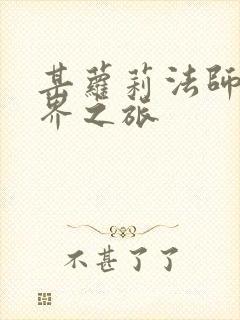 某蘿莉法師
界之旅
不甚了了